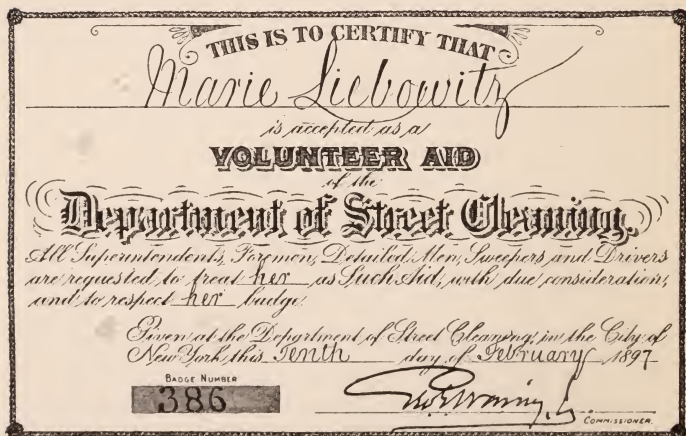 THIS IS TO CERTIFY THAT
Marie Liebowitz
is accepted as a
VOLUNTEER AID
of the
Department of Street Cleaning.
All Superintendents, Foremen, Detailed Men, Sweepers and Drivers
are requested to treat her as Such Aid, with due consideration,
and to respect her badge.
Given at the Department of Street Cleaning, in the City of
New York, this Tenth day of February 1897
BADGE NUMBER
386
Geo. E. Waring, Jr.
COMMISSIONER.